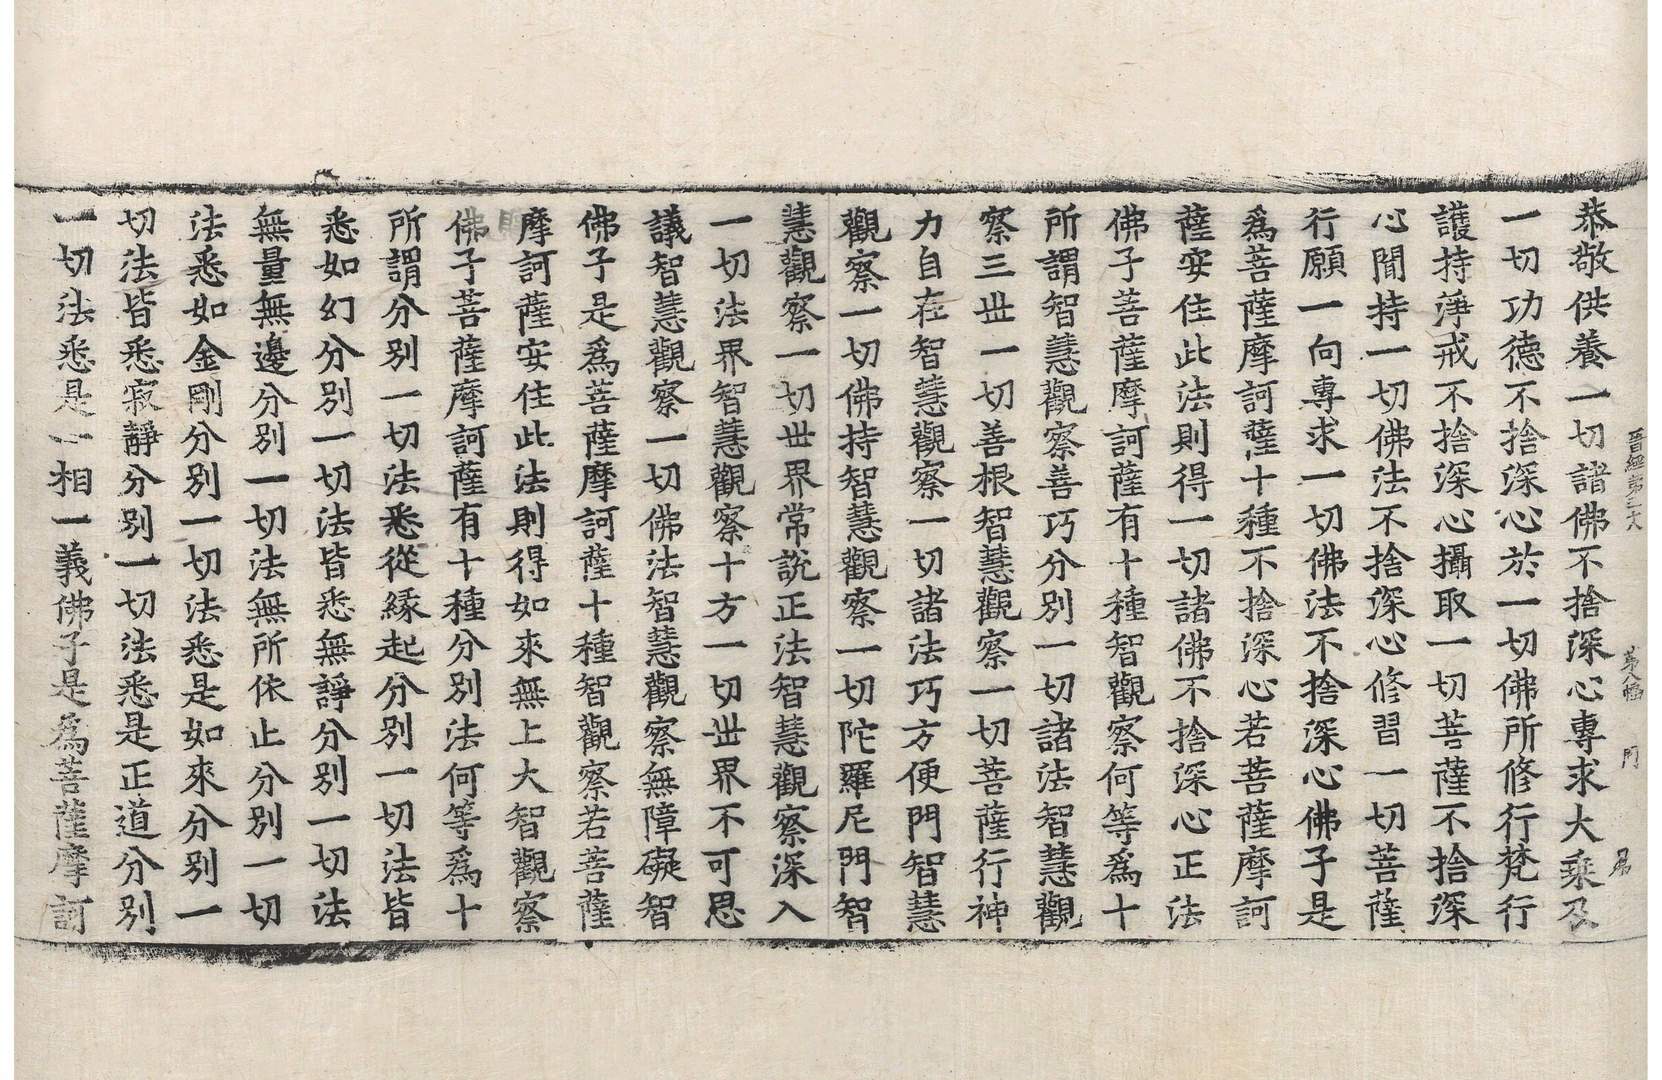 晉經第三六 第八幅 門
恭敬供養一切諸佛不捨深心專求大乘及
一切功德不捨深心於一切佛所修行梵行
護持淨戒不捨深心攝取一切菩薩不捨深
心聞持一切佛法不捨深心修習一切菩薩
行願一向專求一切佛法不捨深心佛子是
爲菩薩摩訶薩十種不捨深心若菩薩摩訶
薩安住此法則得一切諸佛不捨深心正法
佛子菩薩摩訶薩有十種智觀察何等爲十
所謂智慧觀察善巧分別一切諸法智慧觀
察三世一切善根智慧觀察一切菩薩行神
力自在智慧觀察一切諸法巧方便門智慧
觀察一切佛持智慧觀察一切陀羅尼門智
慧觀察一切世界常說正法智慧觀察深入
一切法界智慧觀察十方一切世界不可思
議智慧觀察一切佛法智慧觀察無障礙智
佛子是爲菩薩摩訶薩十種智觀察若菩薩
摩訶薩安住此法則得如來無上大智觀察
佛子菩薩摩訶薩有十種分別法何等爲十
所謂分别一切法悉從緣起分別一切法皆
悉如幻分別一切法皆悉無諍分別一切法
無量無邊分別一切法無所依止分別一切
法悉如金剛分別一切法悉是如來分別一
切法皆悉寂靜分別一切法悉是正道分別
一切法悉是一相一義佛子是爲菩薩摩訶